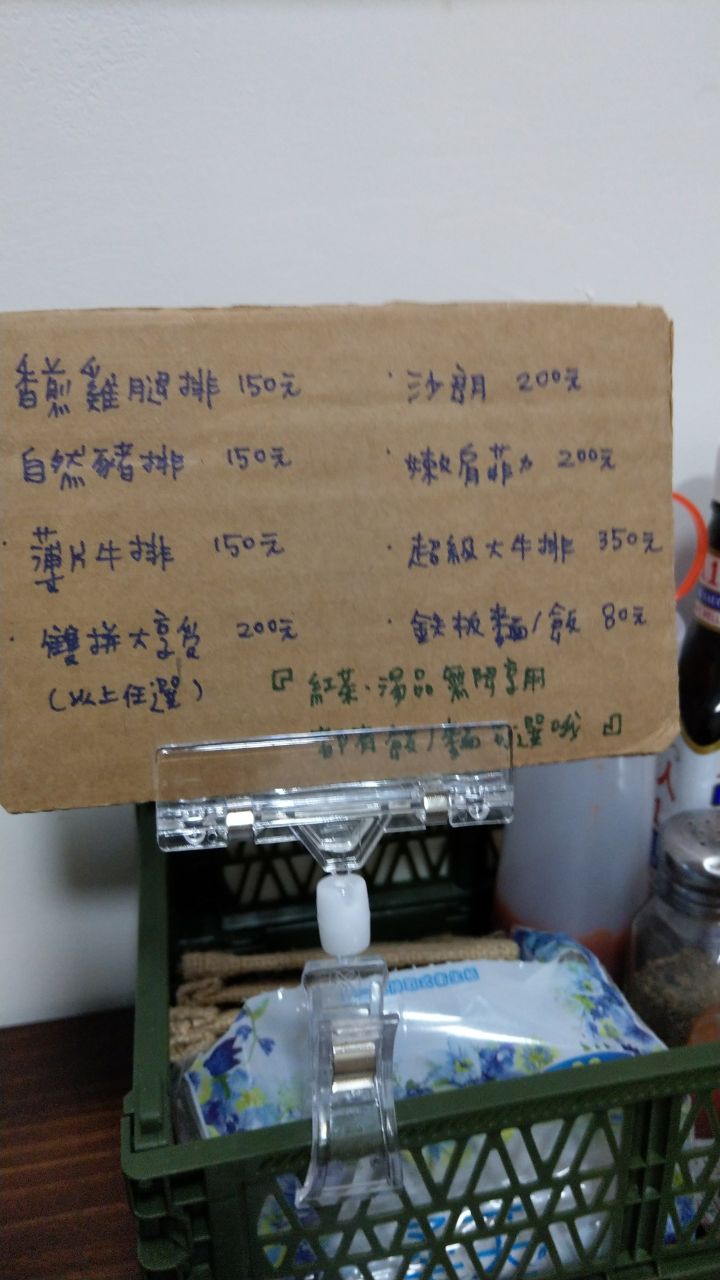 香煎雞腿排 150元
自然豬排 150元
·薄片牛排 150元
·雙拼大享受 200元
(以上任選)
·沙朗 200元
·嫩肩菲力 200元
·超級大牛排 350元
·鉄板麵/飯 80元
『紅茶·湯品無限享用
都有飯/麵可選哦』